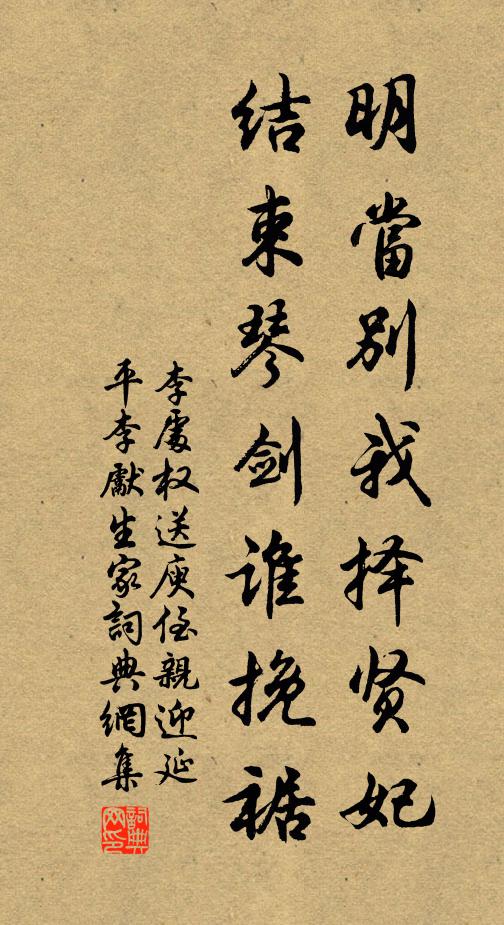 明當別我择贤妃
结束琴剑谁挽裾
李處权送庾侄親迎延
平李獻生家詞典網集
詞典网印